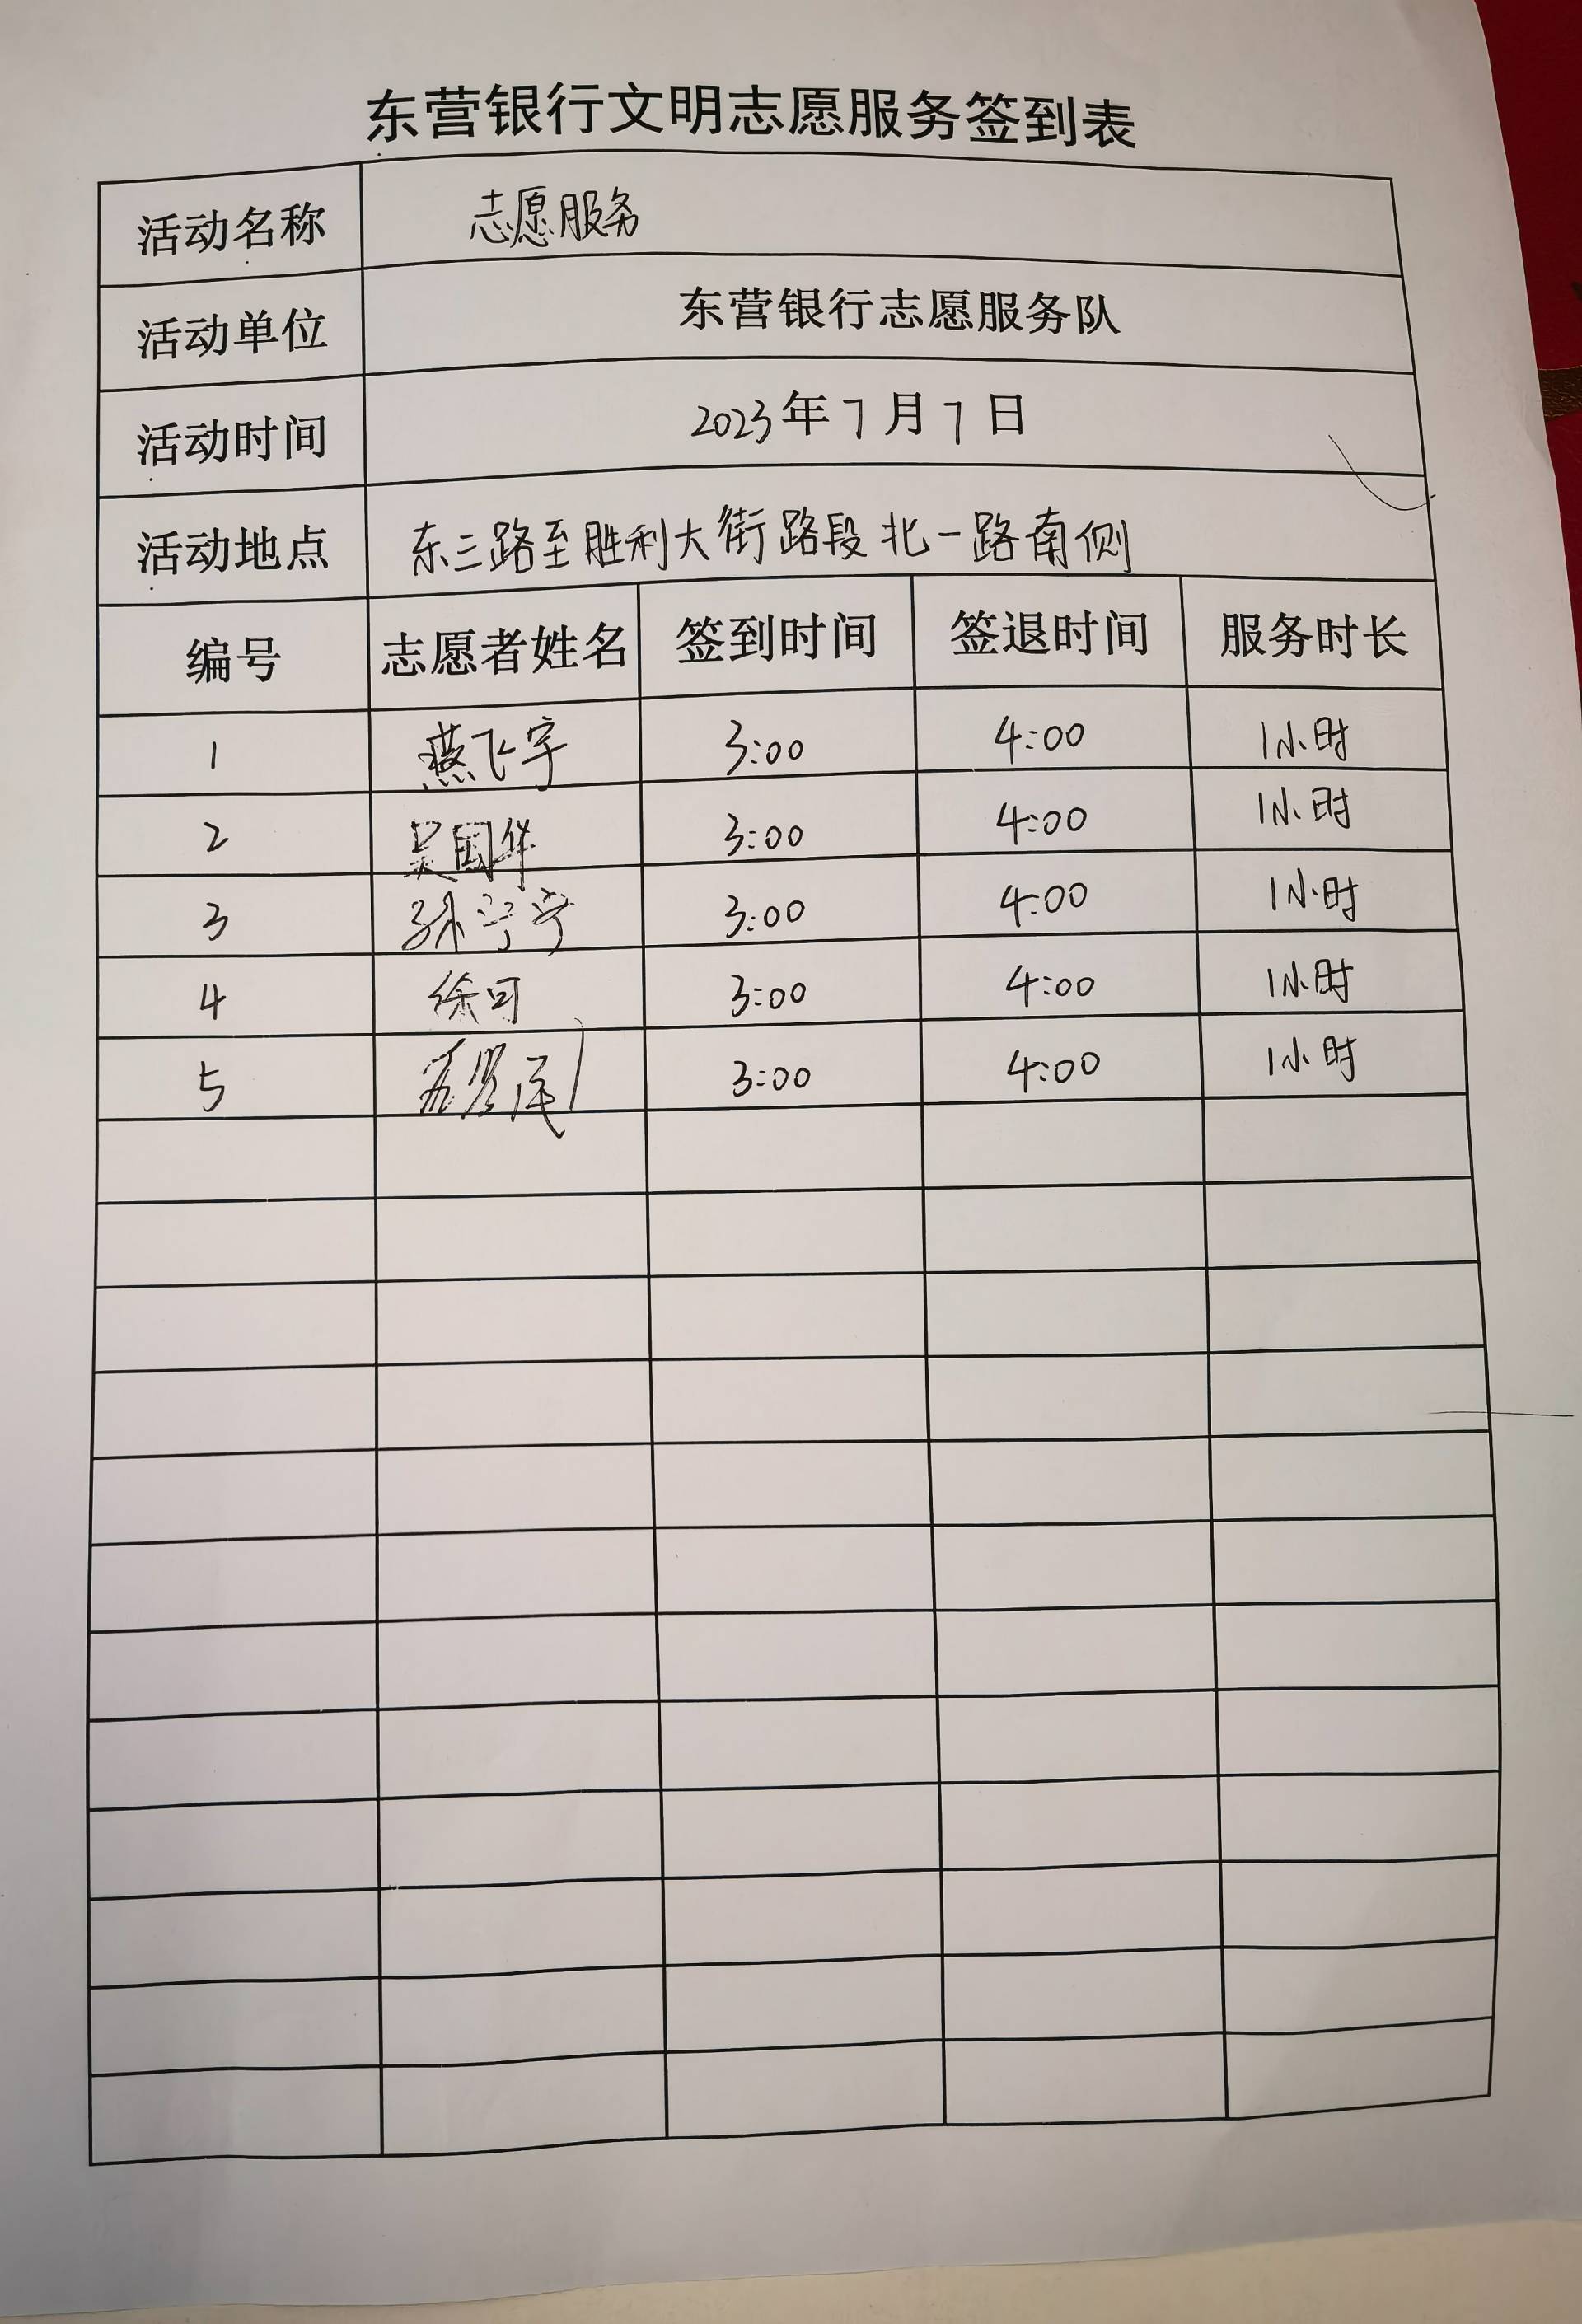 东营银行文明志愿服务签到表
活动名称 志愿服务
活动单位 东营银行志愿服务队
活动时间 2023年7月7日
活动地点 东三路至胜利大街路段北一路南侧
编号 志愿者姓名 签到时间 签退时间 服务时长
1 燕飞宇 3:00 4:00 1小时
2 吴国华 3:00 4:00 1小时
3 孙宁宁 3:00 4:00 1小时
4 徐可 3:00 4:00 1小时
5 3:00 4:00 1小时